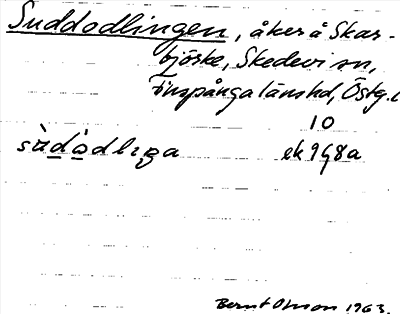 Suddodlingen, åker å Skar-
björke, Skedevi sn,
Finspånga länshd, Östg. l
10
sùdòdlıŋa ek 9G8a
Bernt Olsson 1963.